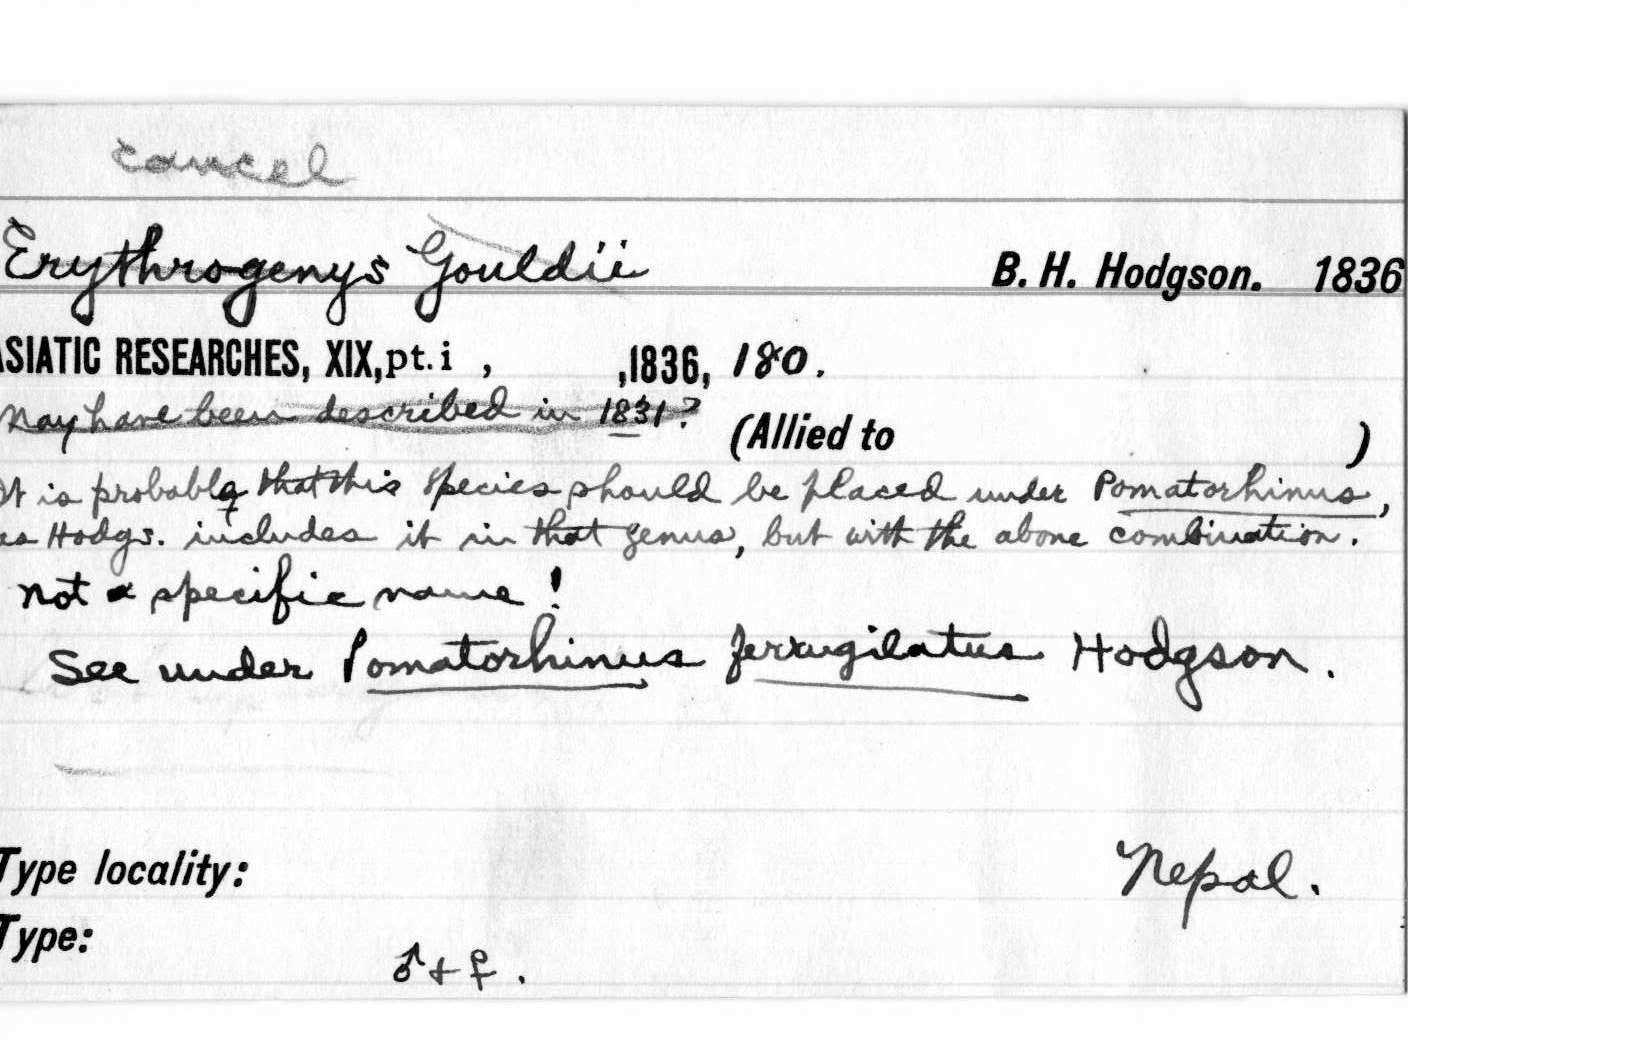 cancel
Erythrogenys Gouldii B. H. Hodgson. 1836
ASIATIC RESEARCHES, XIX, pt. i , ,1836, 180.
May have been described in 1831?
(Allied to )
It is probably that this species should be placed under Pomatorhinus,
as Hodgs. includes it in that genus, but with the above combination.
not a specific name!
See under Pomatorhinus ferrugilatus Hodgson.
Type locality: Nepal.
Type:
♂ + ♀.